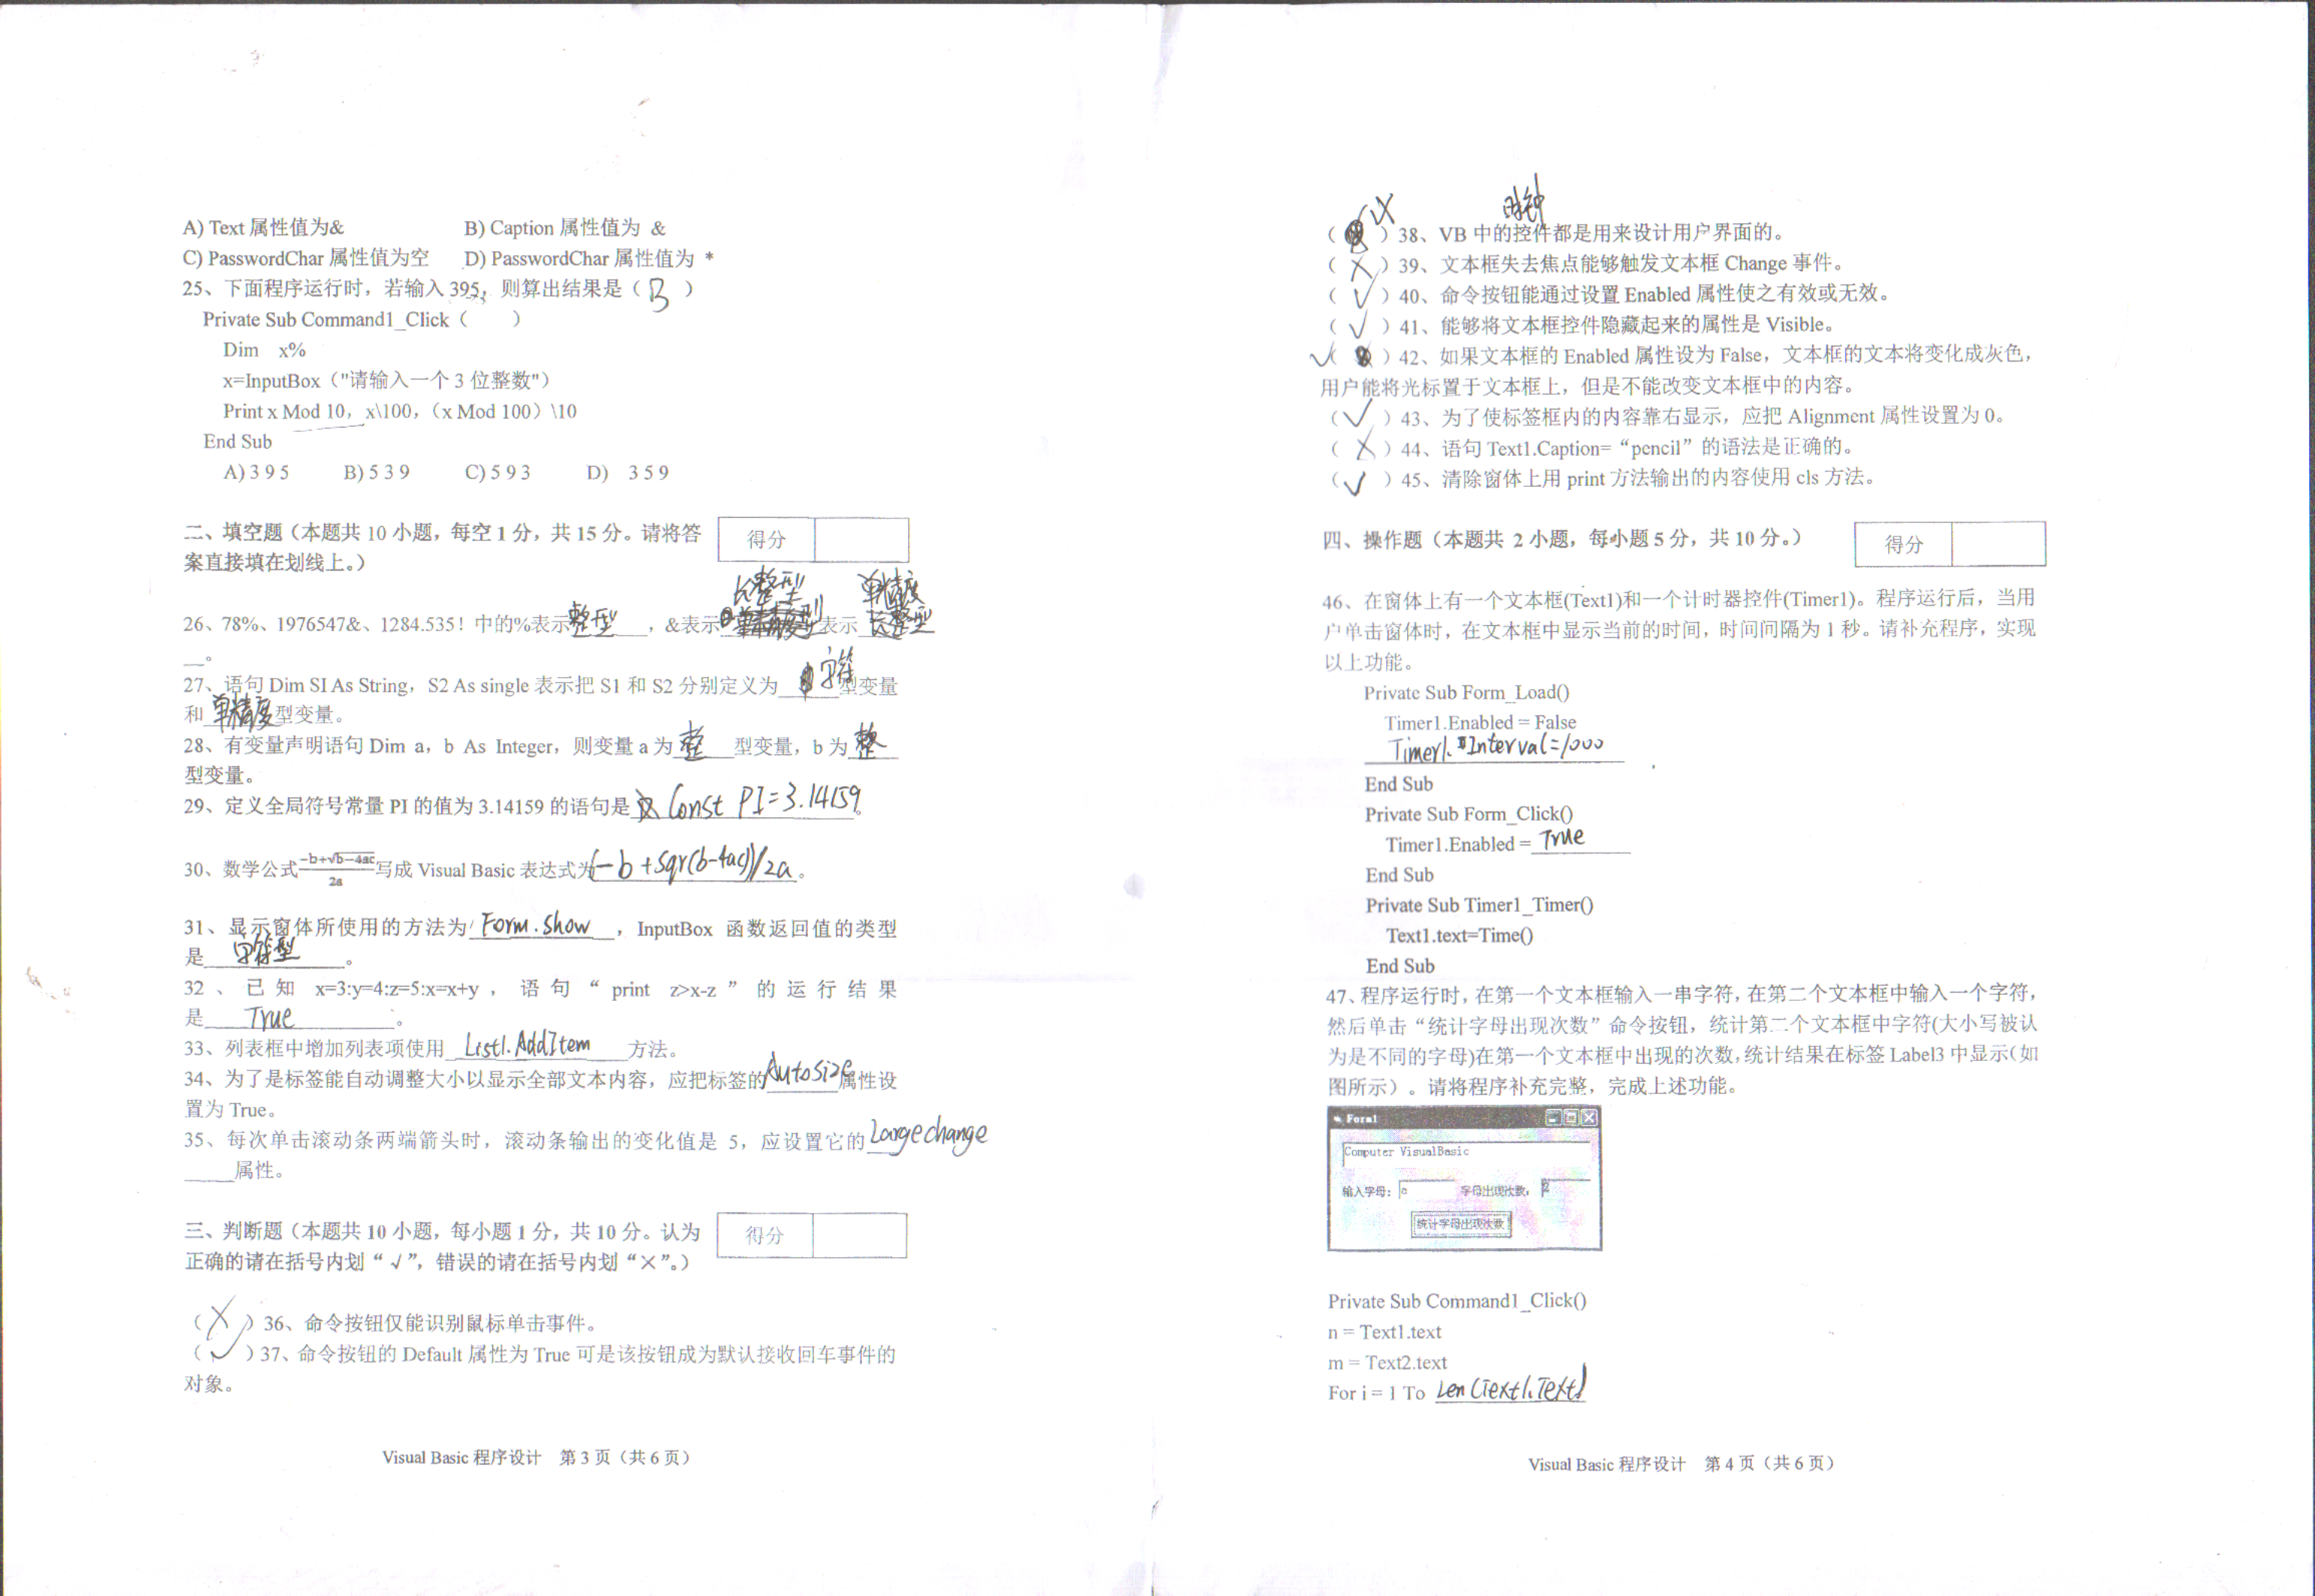 A) Text 属性值为& B) Caption 属性值为 &
C) PasswordChar 属性值为空 D) PasswordChar 属性值为 *
25、下面程序运行时，若输入 395，则算出结果是（ B ）
Private Sub Command1_Click（ ）
Dim x%
x=InputBox（"请输入一个 3 位整数"）
Print x Mod 10，x\100，（x Mod 100）\10
End Sub
A) 3 9 5 B) 5 3 9 C) 5 9 3 D) 3 5 9
二、填空题（本题共 10 小题，每空 1 分，共 15 分。请将答
案直接填在划线上。）
得分
长整型 单精度
26、78%、1976547&、1284.535！中的%表示整型，&表示 表示
。
27、语句 Dim SI As String，S2 As single 表示把 S1 和 S2 分别定义为字符型变量
和单精度型变量。
28、有变量声明语句 Dim a，b As Integer，则变量 a 为整型变量，b 为整
型变量。
29、定义全局符号常量 PI 的值为 3.14159 的语句是 Const PI=3.14159。
30、数学公式(-b+√b-4ac)/2a写成 Visual Basic 表达式为(-b+sqr(b-4ac))/2a。
31、显示窗体所使用的方法为 Form.show，InputBox 函数返回值的类型
是字符型。
32、已知 x=3:y=4:z=5:x=x+y，语句“print z>x-z”的运行结果
是True。
33、列表框中增加列表项使用 List1.AddItem 方法。
34、为了是标签能自动调整大小以显示全部文本内容，应把标签的Autosize属性设
置为 True。
35、每次单击滚动条两端箭头时，滚动条输出的变化值是 5，应设置它的Largechange
属性。
三、判断题（本题共 10 小题，每小题 1 分，共 10 分。认为
正确的请在括号内划“√”，错误的请在括号内划“×”。）
得分
（×）36、命令按钮仅能识别鼠标单击事件。
（√）37、命令按钮的 Default 属性为 True 可是该按钮成为默认接收回车事件的
对象。
Visual Basic 程序设计 第 3 页（共 6 页）
时钟
（ ）38、VB 中的控件都是用来设计用户界面的。
（×）39、文本框失去焦点能够触发文本框 Change 事件。
（√）40、命令按钮能通过设置 Enabled 属性使之有效或无效。
（√）41、能够将文本框控件隐藏起来的属性是 Visible。
√（ ）42、如果文本框的 Enabled 属性设为 False，文本框的文本将变化成灰色，
用户能将光标置于文本框上，但是不能改变文本框中的内容。
（√）43、为了使标签框内的内容靠右显示，应把 Alignment 属性设置为 0。
（×）44、语句 Text1.Caption=“pencil”的语法是正确的。
（√）45、清除窗体上用 print 方法输出的内容使用 cls 方法。
四、操作题（本题共 2 小题，每小题 5 分，共 10 分。）
得分
46、在窗体上有一个文本框(Text1)和一个计时器控件(Timer1)。程序运行后，当用
户单击窗体时，在文本框中显示当前的时间，时间间隔为 1 秒。请补充程序，实现
以上功能。
Private Sub Form_Load()
Timer1.Enabled = False
Timer1.Interval=1000
End Sub
Private Sub Form_Click()
Timer1.Enabled = True
End Sub
Private Sub Timer1_Timer()
Text1.text=Time()
End Sub
47、程序运行时，在第一个文本框输入一串字符，在第二个文本框中输入一个字符，
然后单击“统计字母出现次数”命令按钮，统计第二个文本框中字符(大小写被认
为是不同的字母)在第一个文本框中出现的次数，统计结果在标签 Label3 中显示（如
图所示）。请将程序补充完整，完成上述功能。
Form1
Computer VisualBasic
输入字母： 字母出现次数： 2
统计字母出现次数
Private Sub Command1_Click()
n = Text1.text
m = Text2.text
For i = 1 To Len(Text1.Text)
Visual Basic 程序设计 第 4 页（共 6 页）